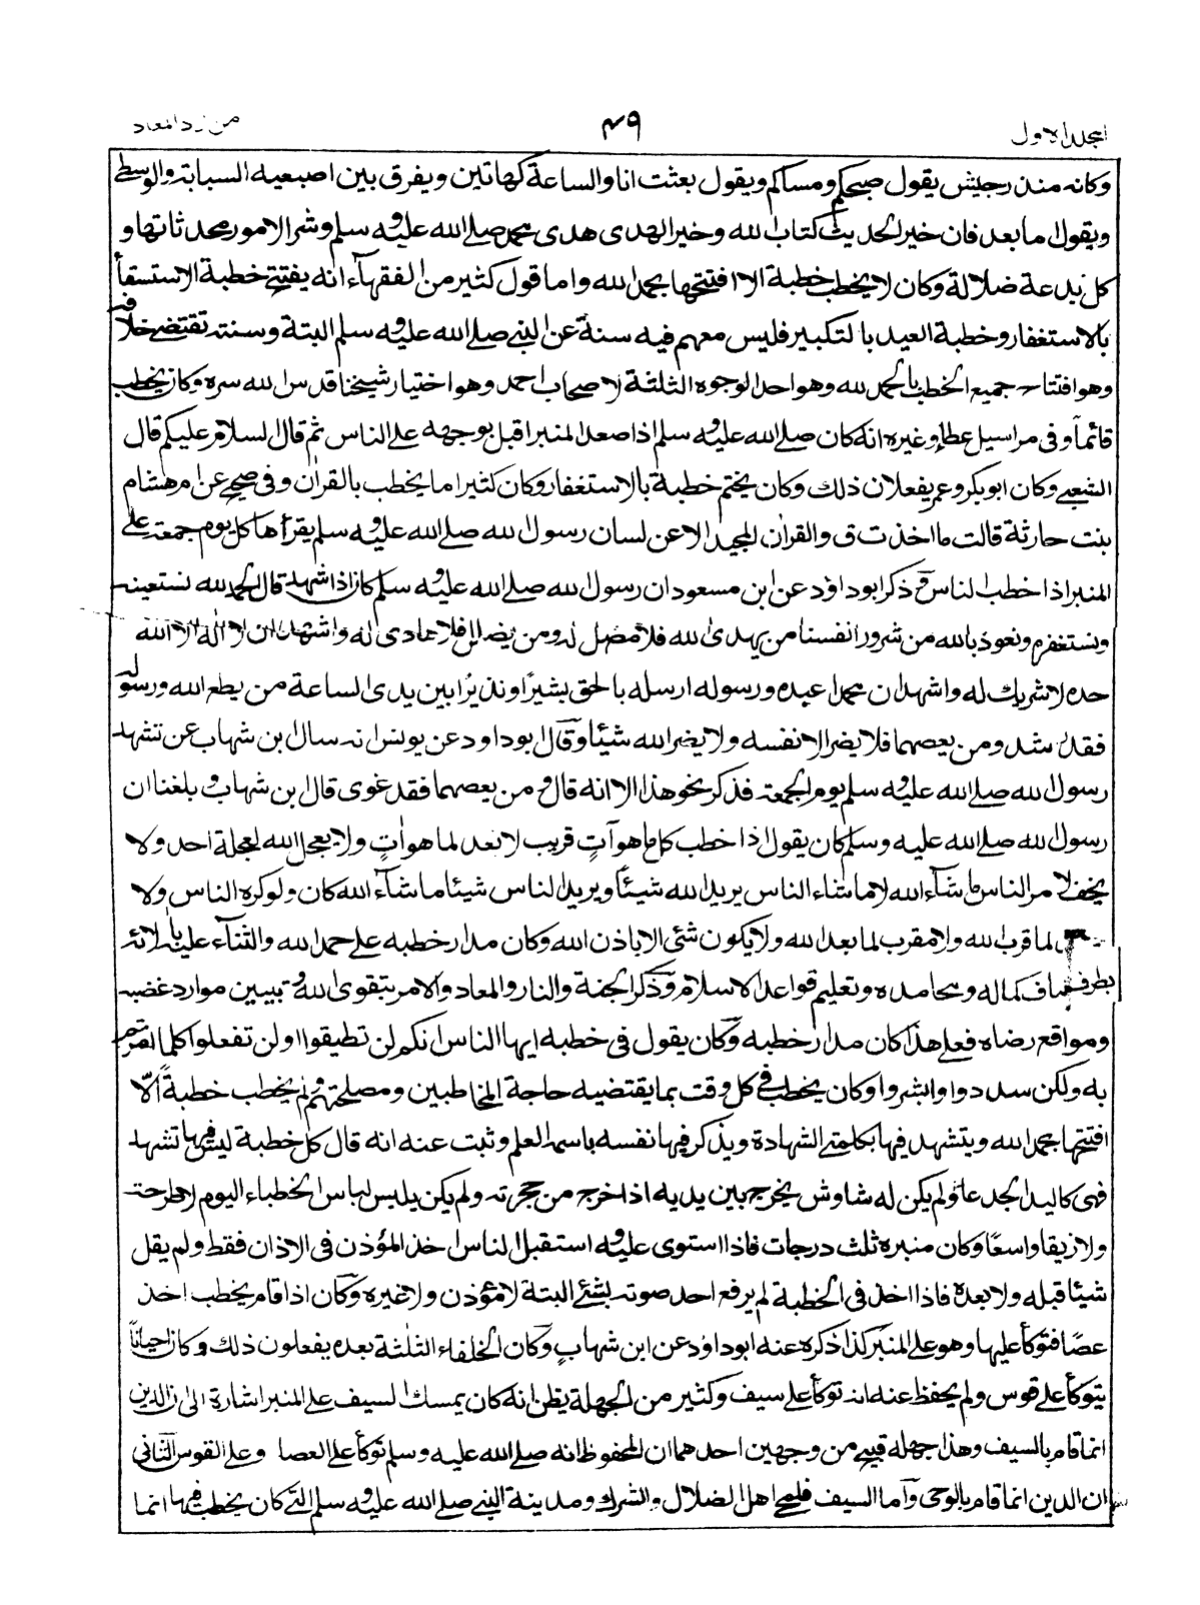 المجلد الاول ۴۹ من زاد المعاد
وكانه منذر جيش يقول صبحكم ومساكم ويقول بعثت انا والساعة كهاتين ويفرق بين اصبعيه السبابة والوسطى
ويقول اما بعد فان خير الحديث كتاب الله وخير الهدى هدى محمد صلى الله عليه وسلم وشر الامور محدثاتها و
كل بدعة ضلالة وكان لا يخطب خطبة الا افتتحها بحمد الله واما قول كثير من الفقهاء انه يفتتح خطبة الاستسقاء
بالاستغفار وخطبة العيد بالتكبير فليس معهم فيه سنة عن النبي صلى الله عليه وسلم البتة وسنته تقتضى خلافه
وهو افتتاح جميع الخطب بالحمد لله وهو احد الوجوه الثلثة لاصحاب احمد وهو اختيار شيخنا قدس الله سره وكان يخطب
قائماً وفى مراسيل عطاء وغيره انه كان صلى الله عليه وسلم اذا صعد المنبر اقبل بوجهه على الناس ثم قال السلام عليكم قال
الشعبي وكان ابو بكر وعمر يفعلان ذلك وكان يختم خطبة بالاستغفار وكان كثيرا ما يخطب بالقران وفى صحيح عن ام هشام
بنت حارثة قالت ما اخذت ق والقران المجيد الا عن لسان رسول الله صلى الله عليه وسلم يقرأها كل يوم جمعة على
المنبر اذا خطب الناس وذكر ابوداؤد عن ابن مسعود ان رسول الله صلى الله عليه وسلم كان اذا تشهد قال الحمد لله نستعينه
ونستغفره ونعوذ بالله من شرور انفسنا من يهدى الله فلا مضل له ومن يضلل فلا هادى له واشهد ان لا اله الا الله
حده لا شريك له واشهد ان محمدا عبده ورسوله ارسله بالحق بشيرًا ونذيرًا بين يدى الساعة من يطع الله ورسوله
فقد رشد ومن يعصهما فلا يضر الا نفسه ولا يضر الله شيئا وقال ابوداود عن يونس انه سال ابن شهاب عن تشهد
رسول الله صلى الله عليه وسلم يوم الجمعة فذكر نحو هذا الا انه قال ومن يعصهما فقد غوى قال ابن شهاب وبلغنا ان
رسول الله صلى الله عليه وسلم كان يقول اذا خطب كل ما هو آتٍ قريب لا بعد لما هو اٰتٍ ولا يعجل الله لعجلة احد ولا
يخف لامر الناس ما شاء الله لا ما شاء الناس يريد الله شيئاً ويريد الناس شيئا ما شاء الله كان ولو كره الناس ولا
لما قرب الله ولا مقرب لما بعد الله ولا يكون شئ الا باذن الله وكان مدار خطبه على حمد الله والثناء عليه بالائه
كماله ومحامده وتعليم قواعد الاسلام وذكر الجنة والنار والمعاد والامر بتقوى الله وتبيين موارد غضبه
ومواقع رضاه فعلى هذا كان مدار خطبه وكان يقول فى خطبه ايها الناس انكم لن تطيقوا او لن تفعلوا كلما امرتم
به ولكن سددوا وابشروا وكان يخطب فى كل وقت بما يقتضيه حاجة المخاطبين ومصلحتهم ولم يخطب خطبةً الّا
افتتحها بحمد الله ويتشهد فيها بكلمتي الشهادة ويذكر فيها نفسه باسمه العلم وثبت عنه انه قال كل خطبة ليس فيها تشهد
فهى كاليد الجدعاء ولم يكن له شاوش يخرج بين يديه اذا خرج من حجرته ولم يكن يلبس لباس الخطباء اليوم لا طرحة
ولا زيقا واسعًا وكان منبره ثلث درجات فاذا استوى عليه واستقبل الناس اخذ المؤذن فى الاذان فقط ولم يقل
شيئا قبله ولا بعده فاذا اخذ فى الخطبة لم يرفع احد صوته بشئ البتة لا مؤذن ولا غيره وكان اذا قام يخطب اخذ
عصًا فتوكأ عليها وهو على المنبر كذا ذكره عنه ابوداؤد عن ابن شهابٍ وكان الخلفاء الثلٰثة بعده يفعلون ذلك وكان احياناً
يتوكأ على قوس ولم يحفظ عنه انه توكأ على سيف وكثير من الجهلة يظن انه كان يمسك السيف على المنبر اشارة الى ان الدين
انما قام بالسيف وهذا جهله قبيح من وجهين احدهما ان المحفوظ انه صلى الله عليه وسلم توكأ على العصا وعلى القوس الثانى
ان الدين انما قام بالوحى وأما السيف فلمحى اهل الضلال والشرك ومدينة النبي صلى الله عليه وسلم التي كان يخطب فيها انما